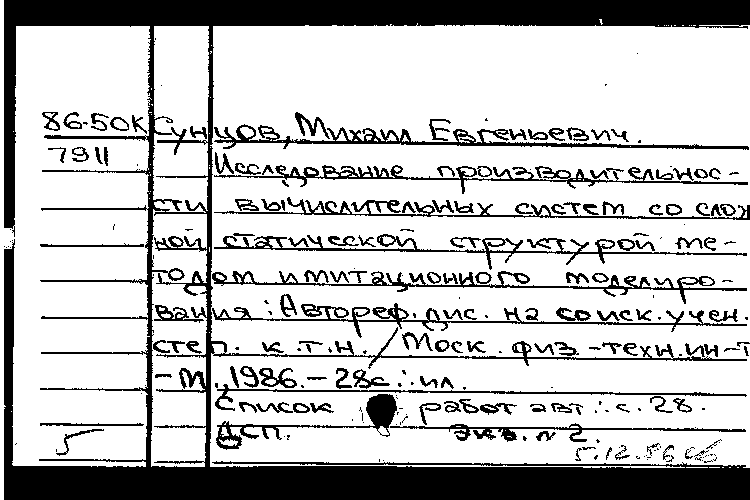 86-50К Сунцов, Михаил Евгеньевич.
7911 Исследование производительнос-
сти вычислительных систем со слож
ной статической структурой ме-
тодом имитационного моделиро-
вания : Автореф. дис. на соиск. учен.
степ. к.т.н. / Моск. физ.-техн. ин-т
- М., 1986. - 28с. : ил.
Список работ авт.: с. 28.
5 ДСП. Экз. № 2.
5.12.86